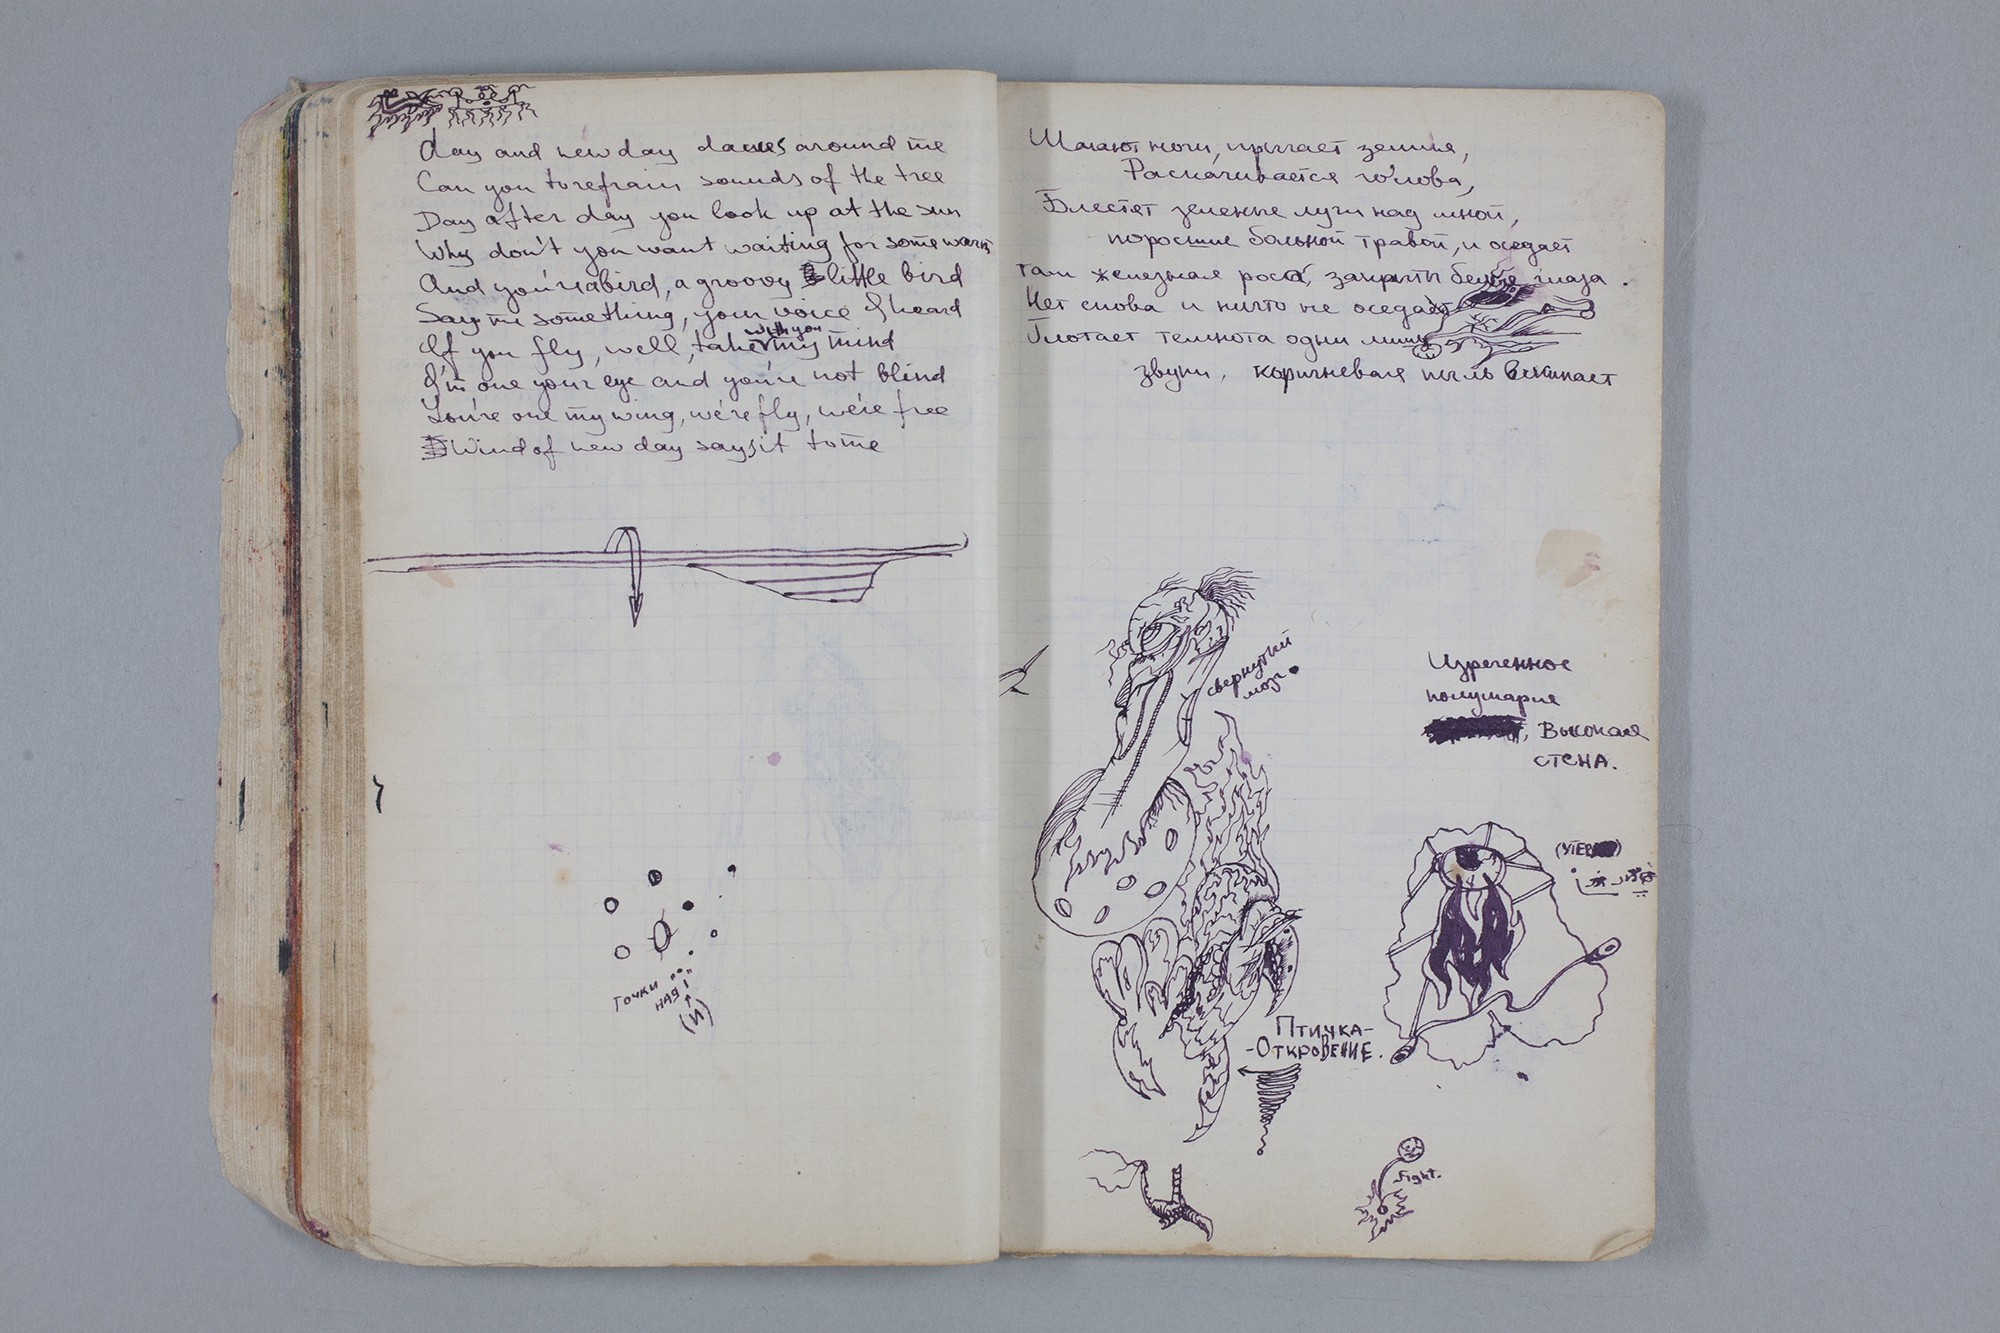 Day and new day dances around me
Can you to refrain sounds of the tree
Day after day you look up at the sun
Why don't you want waiting for some warm
And you're a bird, a groovy little bird
Say me something, your voice I heard
If you fly, well, take with you my mind
I'm one your eye and you're not blind
You're one my wing, we're fly, we're free
Wind of new day says it to me
Точки
над i
(й)
Шагают ноги, прыгает земля,
Раскачивается голова,
Блестят зеленые лучи над мной,
поросшие больной травой, и оседает
там железная роса, закрыты белые глаза.
Нет снова и ничто не оседает
Глотает темнота одни лишь
звуки, коричневая пыль вскипает
свернутый
мозг
Изреченное
полушарие
, Высокая
стена.
Птичка-
-Откровение.
Fight.